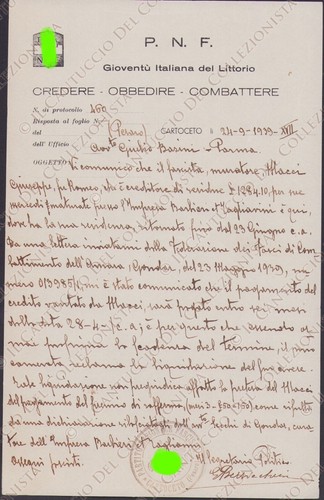 P. N. F.
Gioventù Italiana del Littorio
CREDERE - OBBEDIRE - COMBATTERE
N. di protocollo 460
Risposta al foglio N.
del (Pesaro) CARTOCETO li 24-9-1939-XVII
dell'Ufficio Avv. Giulio Parma
OGGETTO: Vi comunico che il fascista, muratore, Macci
Giuseppe, fu Romeo, che è creditore di residue £ 1284.10, per sue
mercedi maturate presso l'Impresa Barbieri e Tagliavini è qui,
ove ha la sua residenza, ritornato fino dal 23 Giugno c.a.
Da una lettera inviatami dalla Federazione dei Fasci di Com-
battimento dell'Amara, Gondar, del 23 Maggio 1939, nu
mero 013985/ mi è stato comunicato che il pagamento del
credito vantato da Macci, sarà fatto entro sei mesi
dalla data 28-4- c.a; è per questo che essendo or
mai prossima la scadenza del termine, il
reclama la liquidazione del suo avere.
Tale liquidazione non pregiudica affatto la pretesa del Macci
del pagamento del premio di come risulta
da una dichiarazione rilasciatagli dall'avv. di Gondar, cura
tore dell'Impresa Barbieri e Tagliavini
Il Segretario Politico